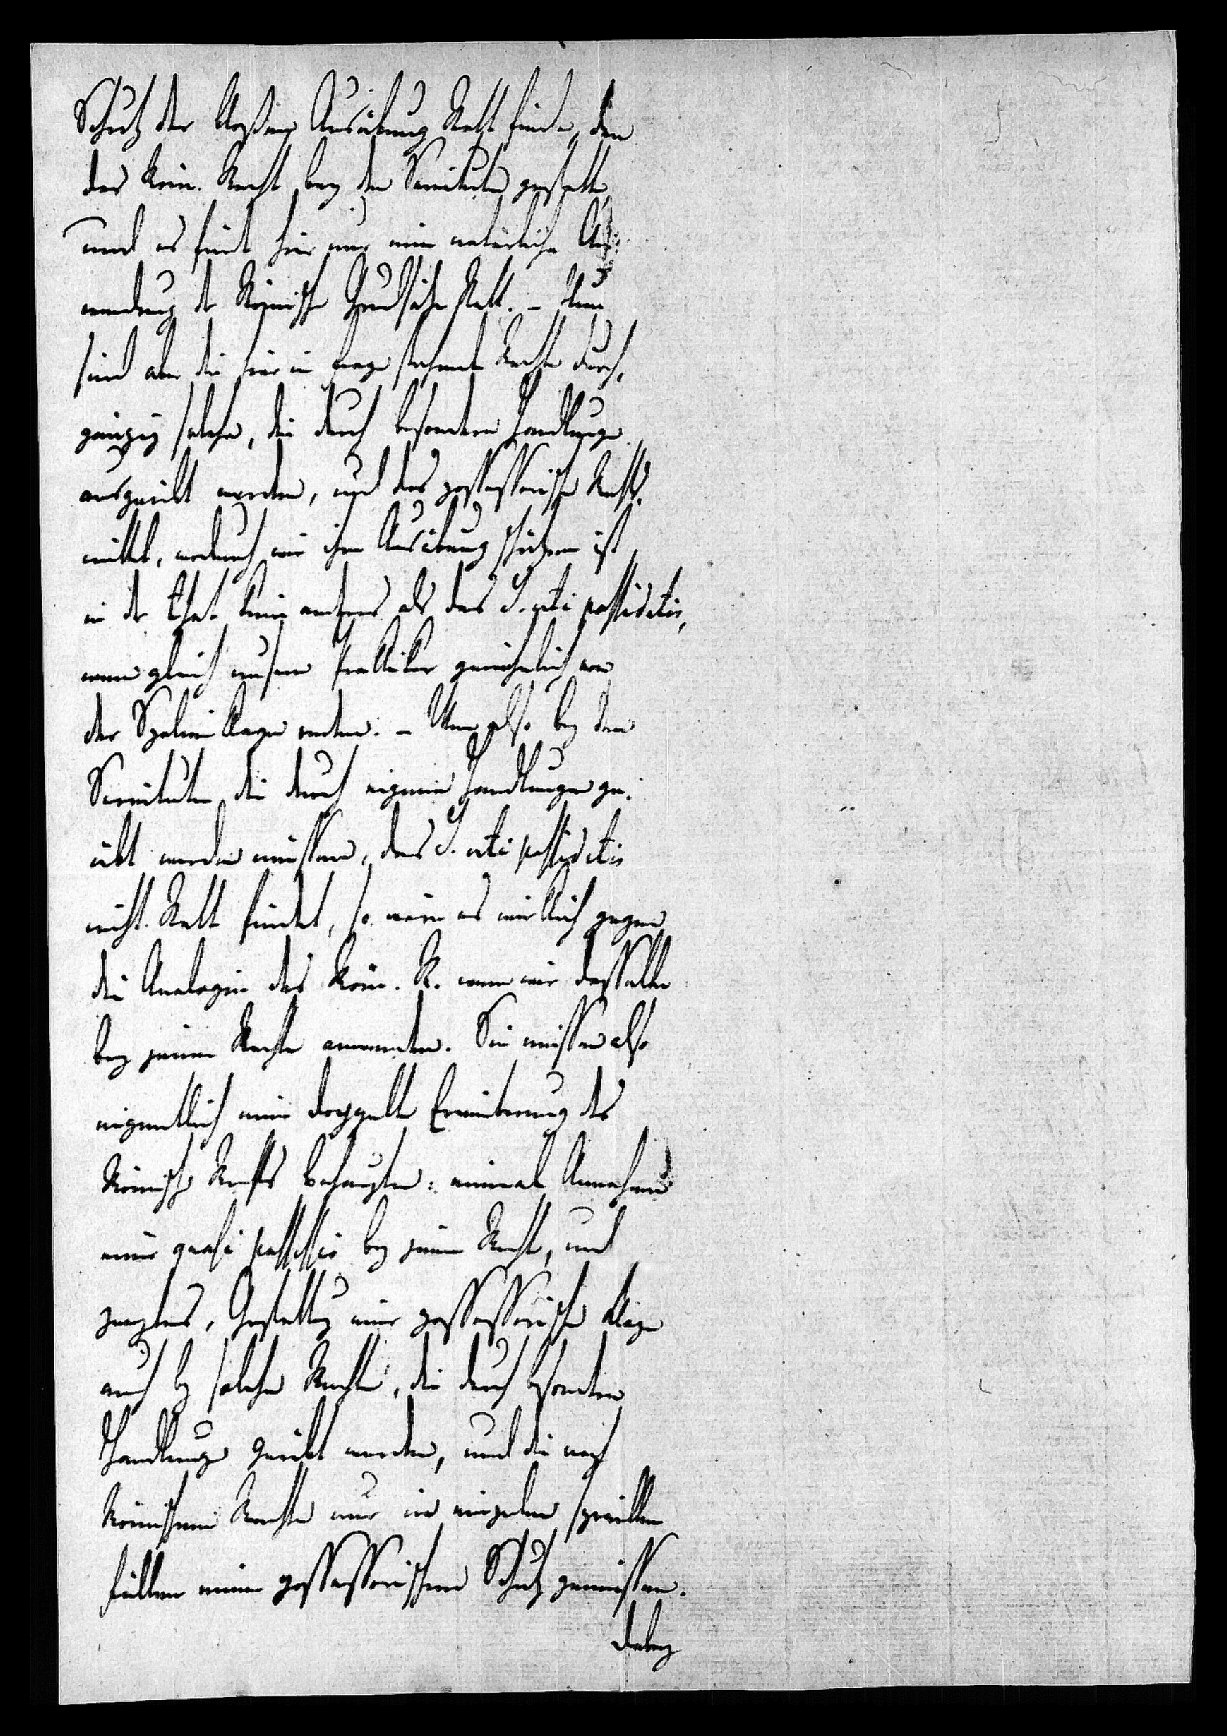 Schutz der bloßen Ausübung Statt finde, den
das Röm. Recht bey den Servituten gestattet,
und es findet hier nur eine natürliche An¬
wendung der Römischen Grundsätze Statt. – Nun
sind aber die hier in Frage stehenden Rechte durch¬
gängig solche, die durch besondere Handlungen
ausgeübt werden, und das possessorische Rechts¬
mittel, wodurch wir ihre Ausübung schützen ist
in der That kein anderes als das I. uti possidetis,
wenn gleich unsere Praktiker gewöhnlich von
der Spolienklage reden. – Wenn also bey den
Servituten die durch eigene Handlungen ge¬
übt werden müssen, das I. uti possidetis
nicht Statt findet, so wäre es wirklich gegen
die Analogie des Röm. R. wenn wir dasselbe
bey jenen Rechten anwenden. Sie müssen also
eigentlich eine doppelte Erweiterung des
Römischen Rechts behaupten: einmal Annahme
einer quasi possessio bey jenen Rechten, und
zweytens, Gestattung einer possessorischen Klage
auch bey solchen Rechten, die durch besondere
Handlungen geübt werden, und die nach
Römischem Rechte nur in einzelnen speciellen
Fällen einen possessorischen Schutz geniessen.
Dabey